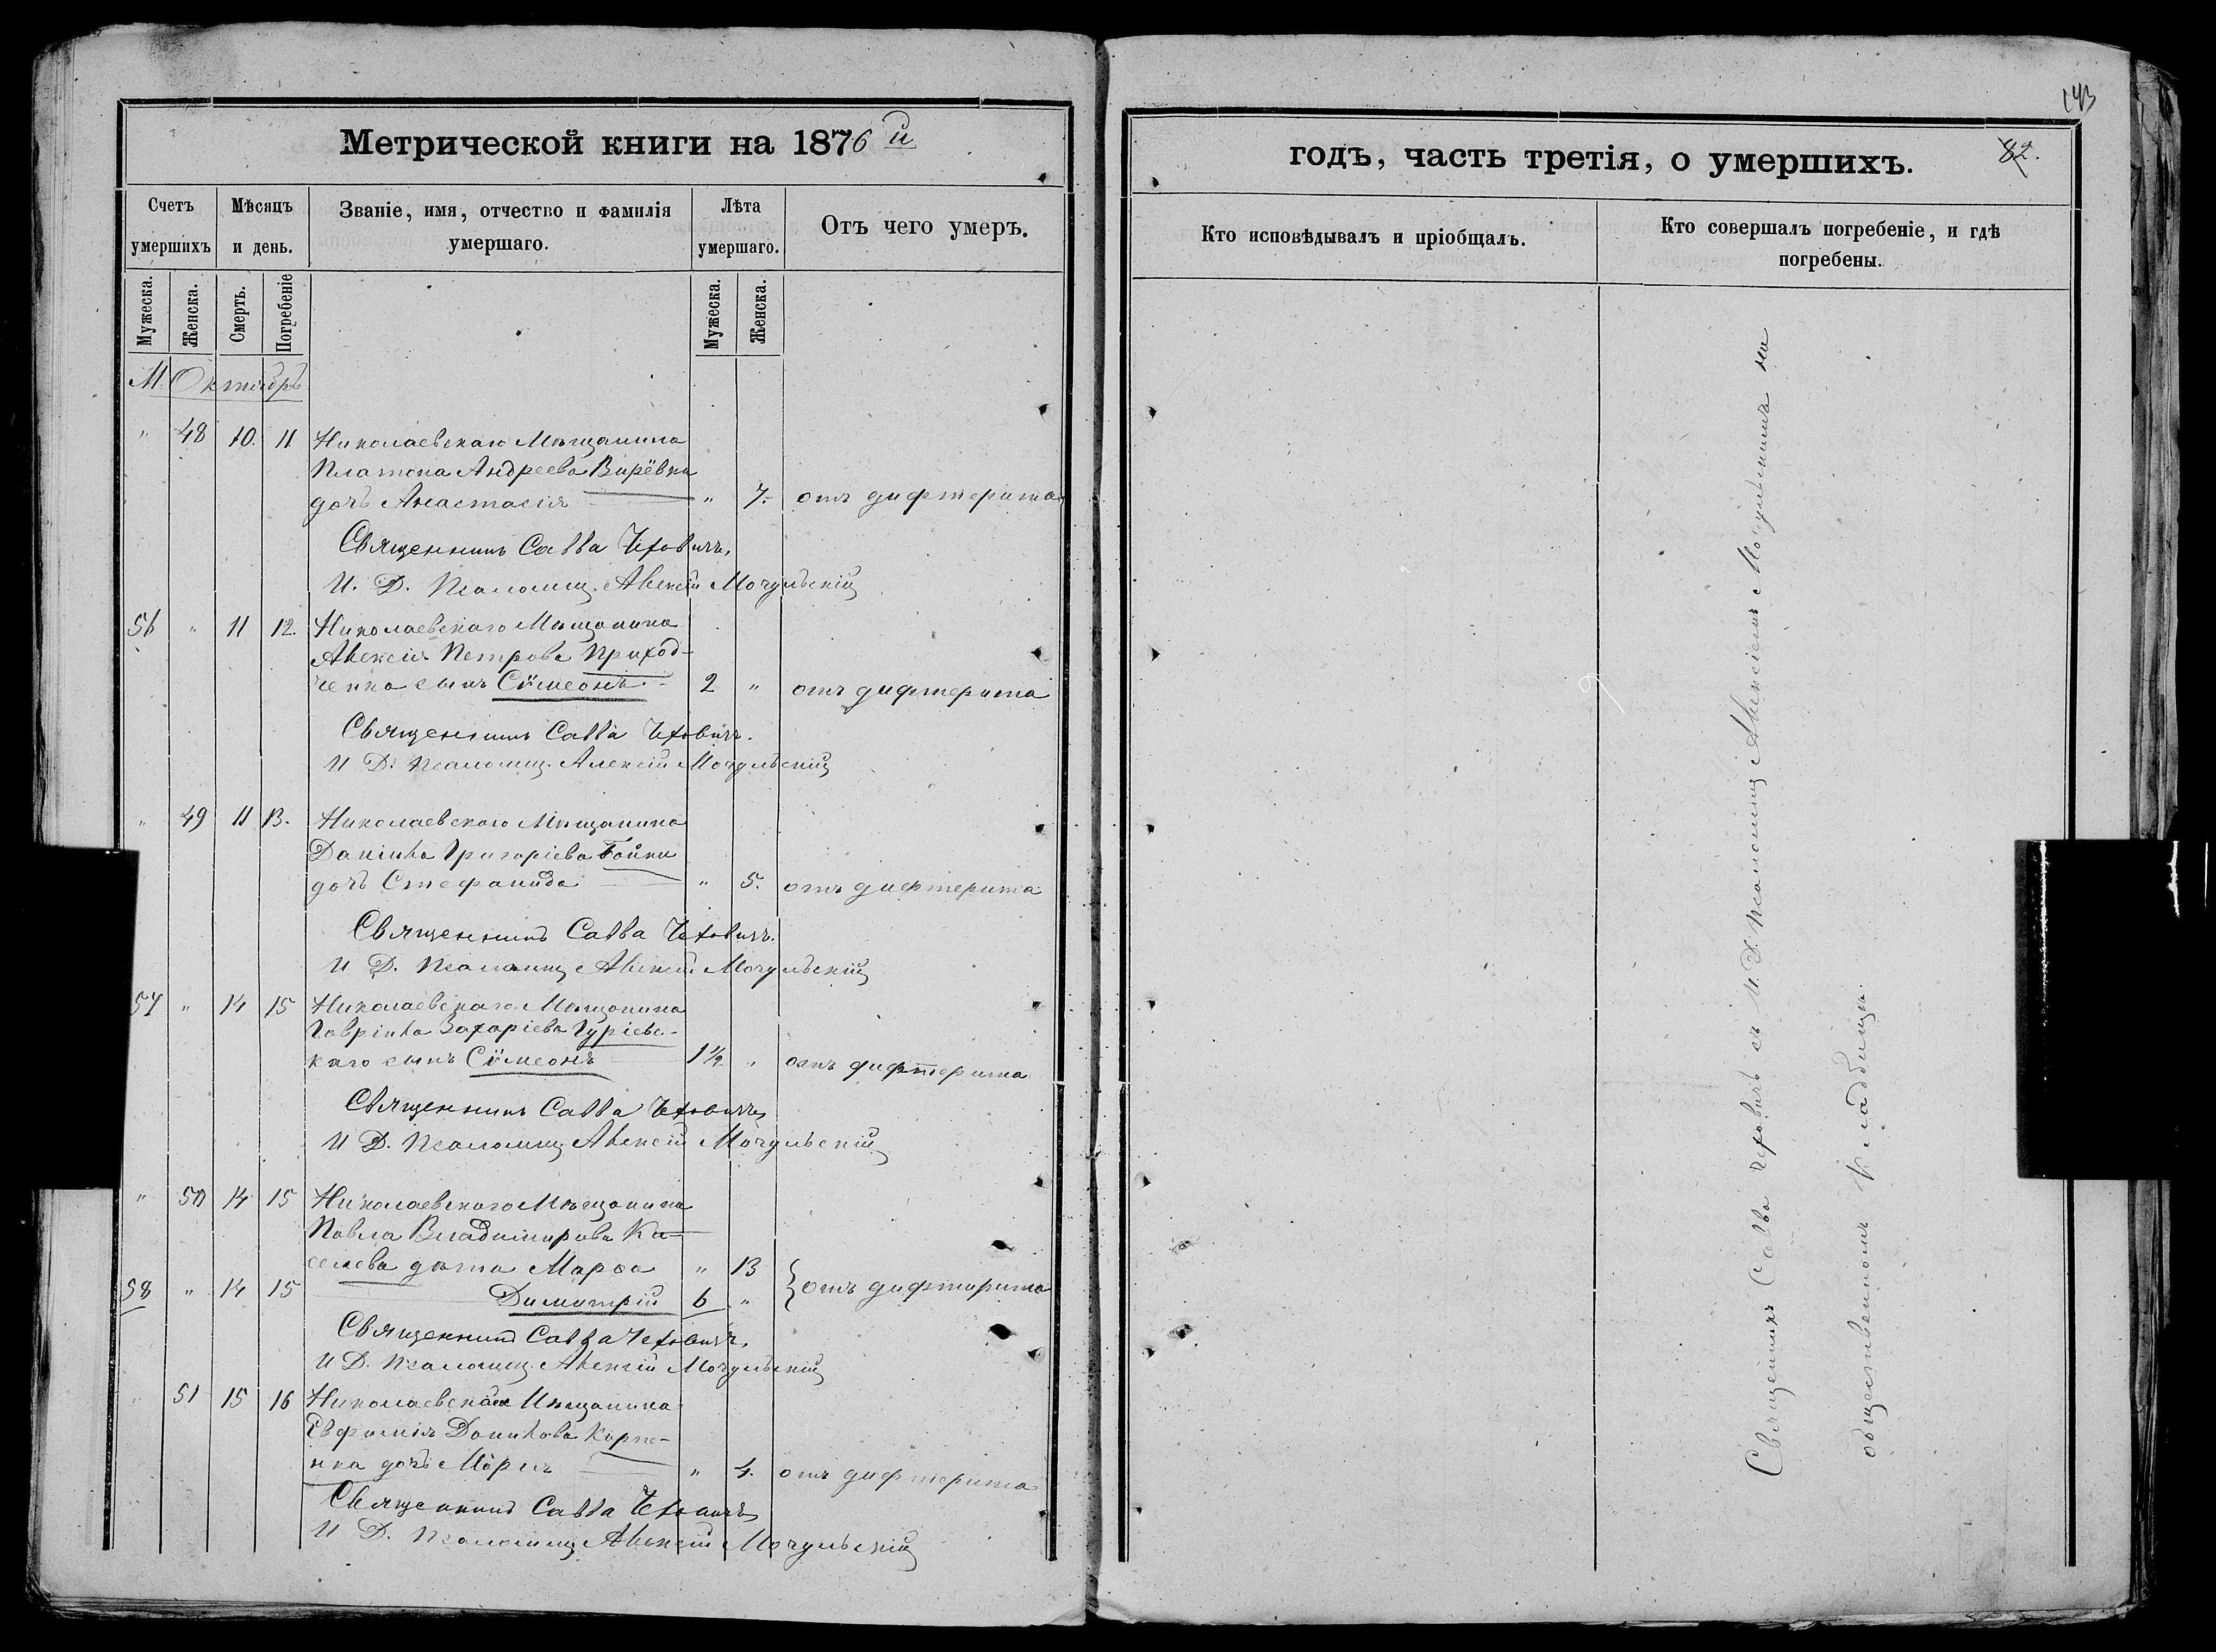 Метрической книги на 1876 й
Счетъ умершихъ
Мѣсяцъ и день.
Званіе, имя, отчество и фамилія умершаго.
Лѣта умершаго.
Отъ чего умеръ.
Мужеска.
Женска.
Смерть.
Погребеніе
Мужеска.
Женска.
М. Октябрь
" 48 10. 11 Николаевскаго Мѣщанина
Платона Андреева Вирёвки
дочь Анастасія " 7. отъ дифтерита
Священникъ Савва Чехович.
И. Д. Псаломщ. Алексій Мочульскій
56 " 11 12. Николаевскаго Мѣщанина
Алексія Петрова Приход-
ченка сынъ Сѵмеонъ 2 " отъ дифтерита
Священникъ Савва Чехович.
И Д. Псаломщ. Алексій Мочульскій
" 49 11 13. Николаевскаго Мѣщанина
Даніила Григоріева Бойки
дочь Стефанида " 5. отъ дифтерита
Священникъ Савва Чехович.
И Д. Псаломщ Алексій Мочульскій
57 " 14 15 Николаевскаго Мѣщанина
Гавріила Захаріева Гуріевс-
каго сынъ Сѵмеонъ 1½ " отъ дифтерита
Священникъ Савва Чехович
И Д. Псаломщ Алексій Мочульскій
" 50 14 15 Николаевскаго Мѣщанина
Павла Владимирова Ки-
селева дѣти Марѳа " 13
58 " 14 15 Димитрій 6 " } отъ дифтерита
Священникъ Савва Чехович.
И Д. Псаломщ. Алексій Мочульскій
" 51 15 16 Николаевскаго Мѣщанина
Евфимія Данилова Карпе-
нка дочь Марія " 4. отъ дифтерита
Священникъ Савва Чехович
И Д. Псаломщ Алексій Мочульскій
143
годъ, часть третія, о умершихъ.
82.
Кто исповѣдывалъ и пріобщалъ.
Кто совершалъ погребеніе, и гдѣ погребены.
Священникъ Савва Чеховичъ съ И. Д. Псаломщ Алексіемъ Мочульскимъ на
общественномъ кладбищѣ.